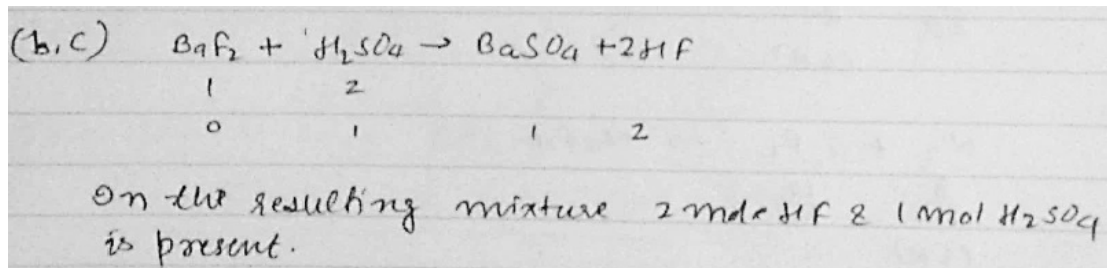 (b,c) BaF₂ + H₂SO₄ → BaSO₄ + 2HF
1 2
0 1 1 2
On the resulting mixture 2 mole HF & 1 mol H₂SO₄
is present.